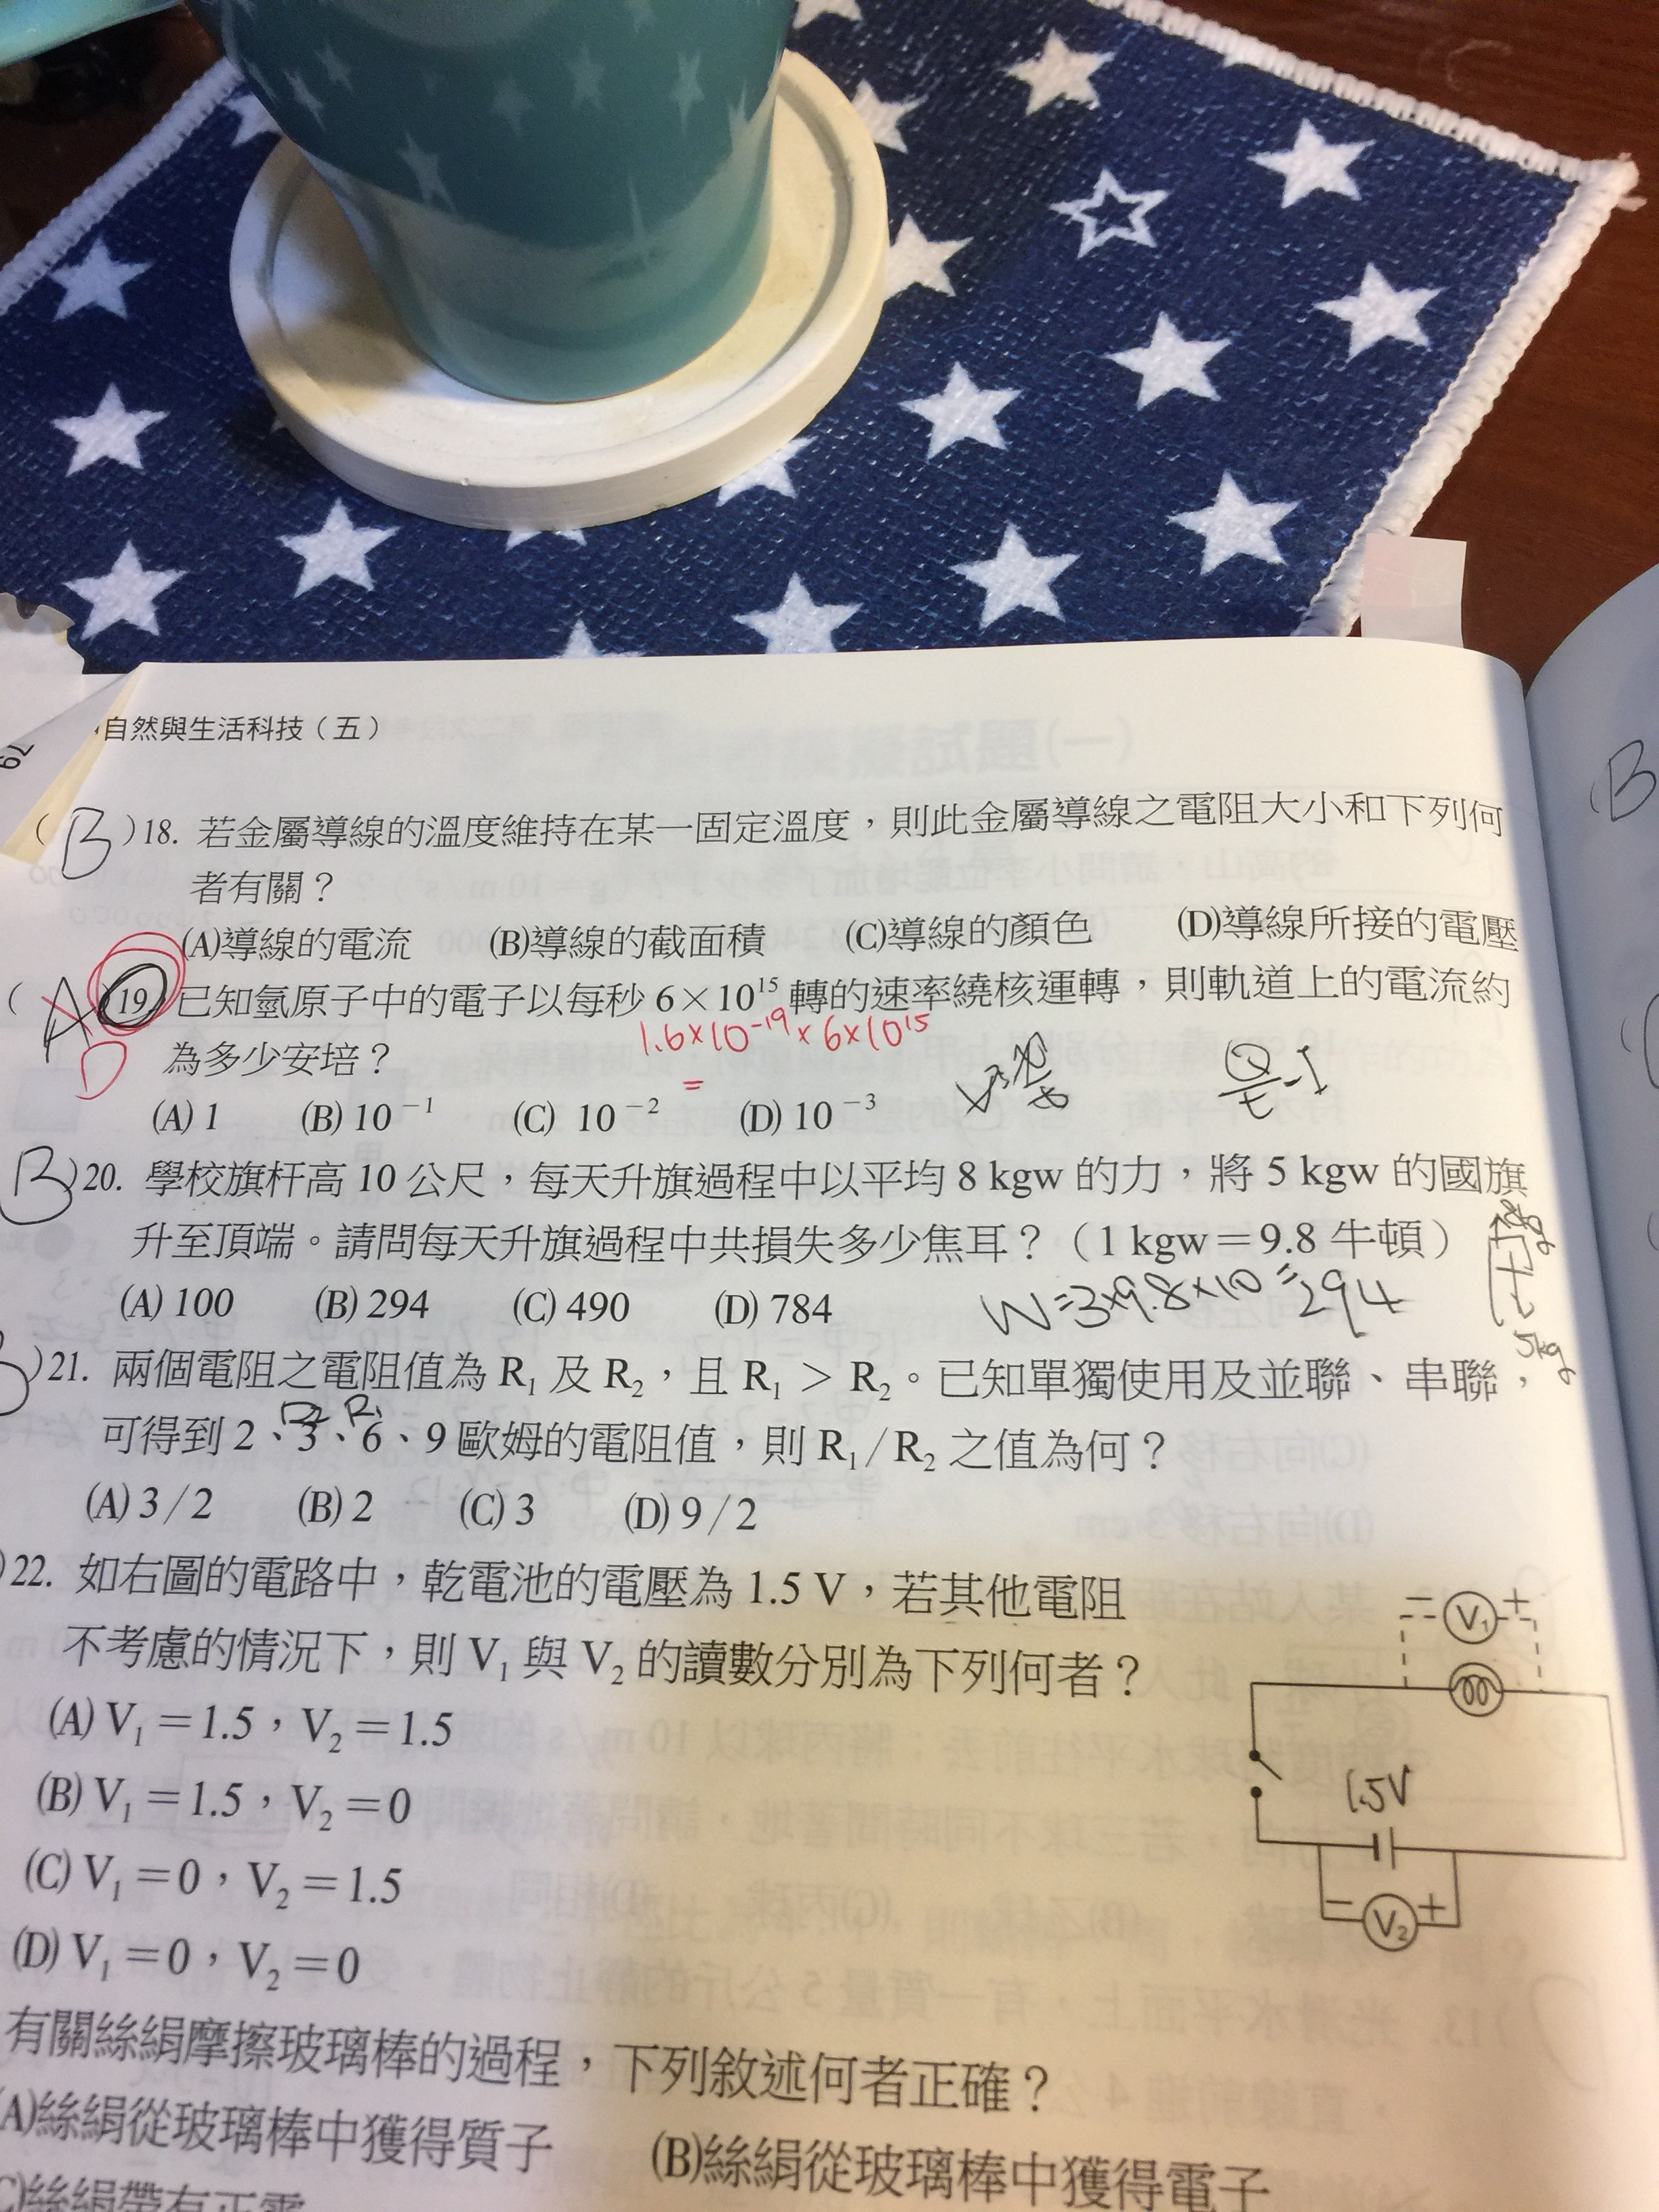 自然與生活科技(五)
(B)18. 若金屬導線的溫度維持在某一固定溫度,則此金屬導線之電阻大小和下列何
者有關?
(A)導線的電流 (B)導線的截面積 (C)導線的顏色 (D)導線所接的電壓
(A)19. 已知氫原子中的電子以每秒 6×10¹⁵ 轉的速率繞核運轉,則軌道上的電流約
1.6×10⁻¹⁹×6×10¹⁵
D 為多少安培?
=
Q/t=I
(A) 1 (B) 10⁻¹ (C) 10⁻² (D) 10⁻³
B)20. 學校旗杆高 10 公尺,每天升旗過程中以平均 8 kgw 的力,將 5 kgw 的國旗
升至頂端。請問每天升旗過程中共損失多少焦耳?(1 kgw=9.8 牛頓)
(A) 100 (B) 294 (C) 490 (D) 784
W=3×9.8×10=294
5kg
)21. 兩個電阻之電阻值為 R₁ 及 R₂,且 R₁ > R₂。已知單獨使用及並聯、串聯,
R2 R1
可得到 2、3、6、9 歐姆的電阻值,則 R₁/R₂ 之值為何?
(A) 3/2 (B) 2 (C) 3 (D) 9/2
)22. 如右圖的電路中,乾電池的電壓為 1.5 V,若其他電阻
不考慮的情況下,則 V₁ 與 V₂ 的讀數分別為下列何者?
(A) V₁=1.5,V₂=1.5
(B) V₁=1.5,V₂=0
(C) V₁=0,V₂=1.5
(D) V₁=0,V₂=0
− V₁ +
1.5V
− V₂ +
有關絲絹摩擦玻璃棒的過程,下列敘述何者正確?
(A)絲絹從玻璃棒中獲得質子 (B)絲絹從玻璃棒中獲得電子
C)絲絹帶有正電
B